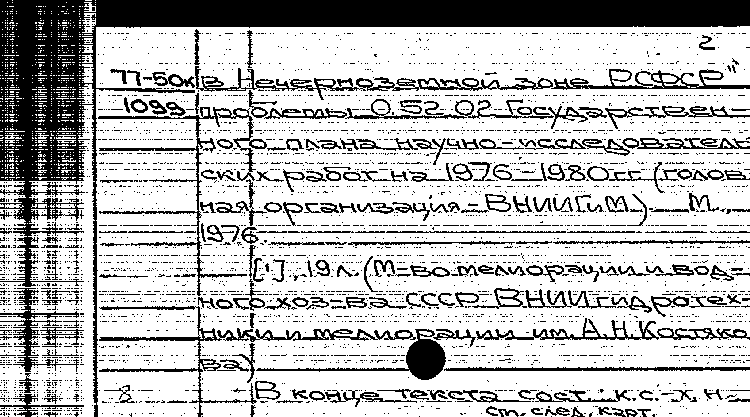 2
77-50к в Нечерноземной зоне РСФСР"
1099 проблемы 0.52.02 Государствен-
ного плана научно-исследователь
ских работ на 1976-1980гг (голов
ная организация - ВНИИГиМ). М.,
1976.
[1], 19 л. (М-во мелиорации и вод-
ного хоз-ва СССР ВНИИ гидротех-
ники и мелиорации им. А.Н. Костяко
ва)
8 В конце текста сост.: к.с.-х.н.
см. след. карт.